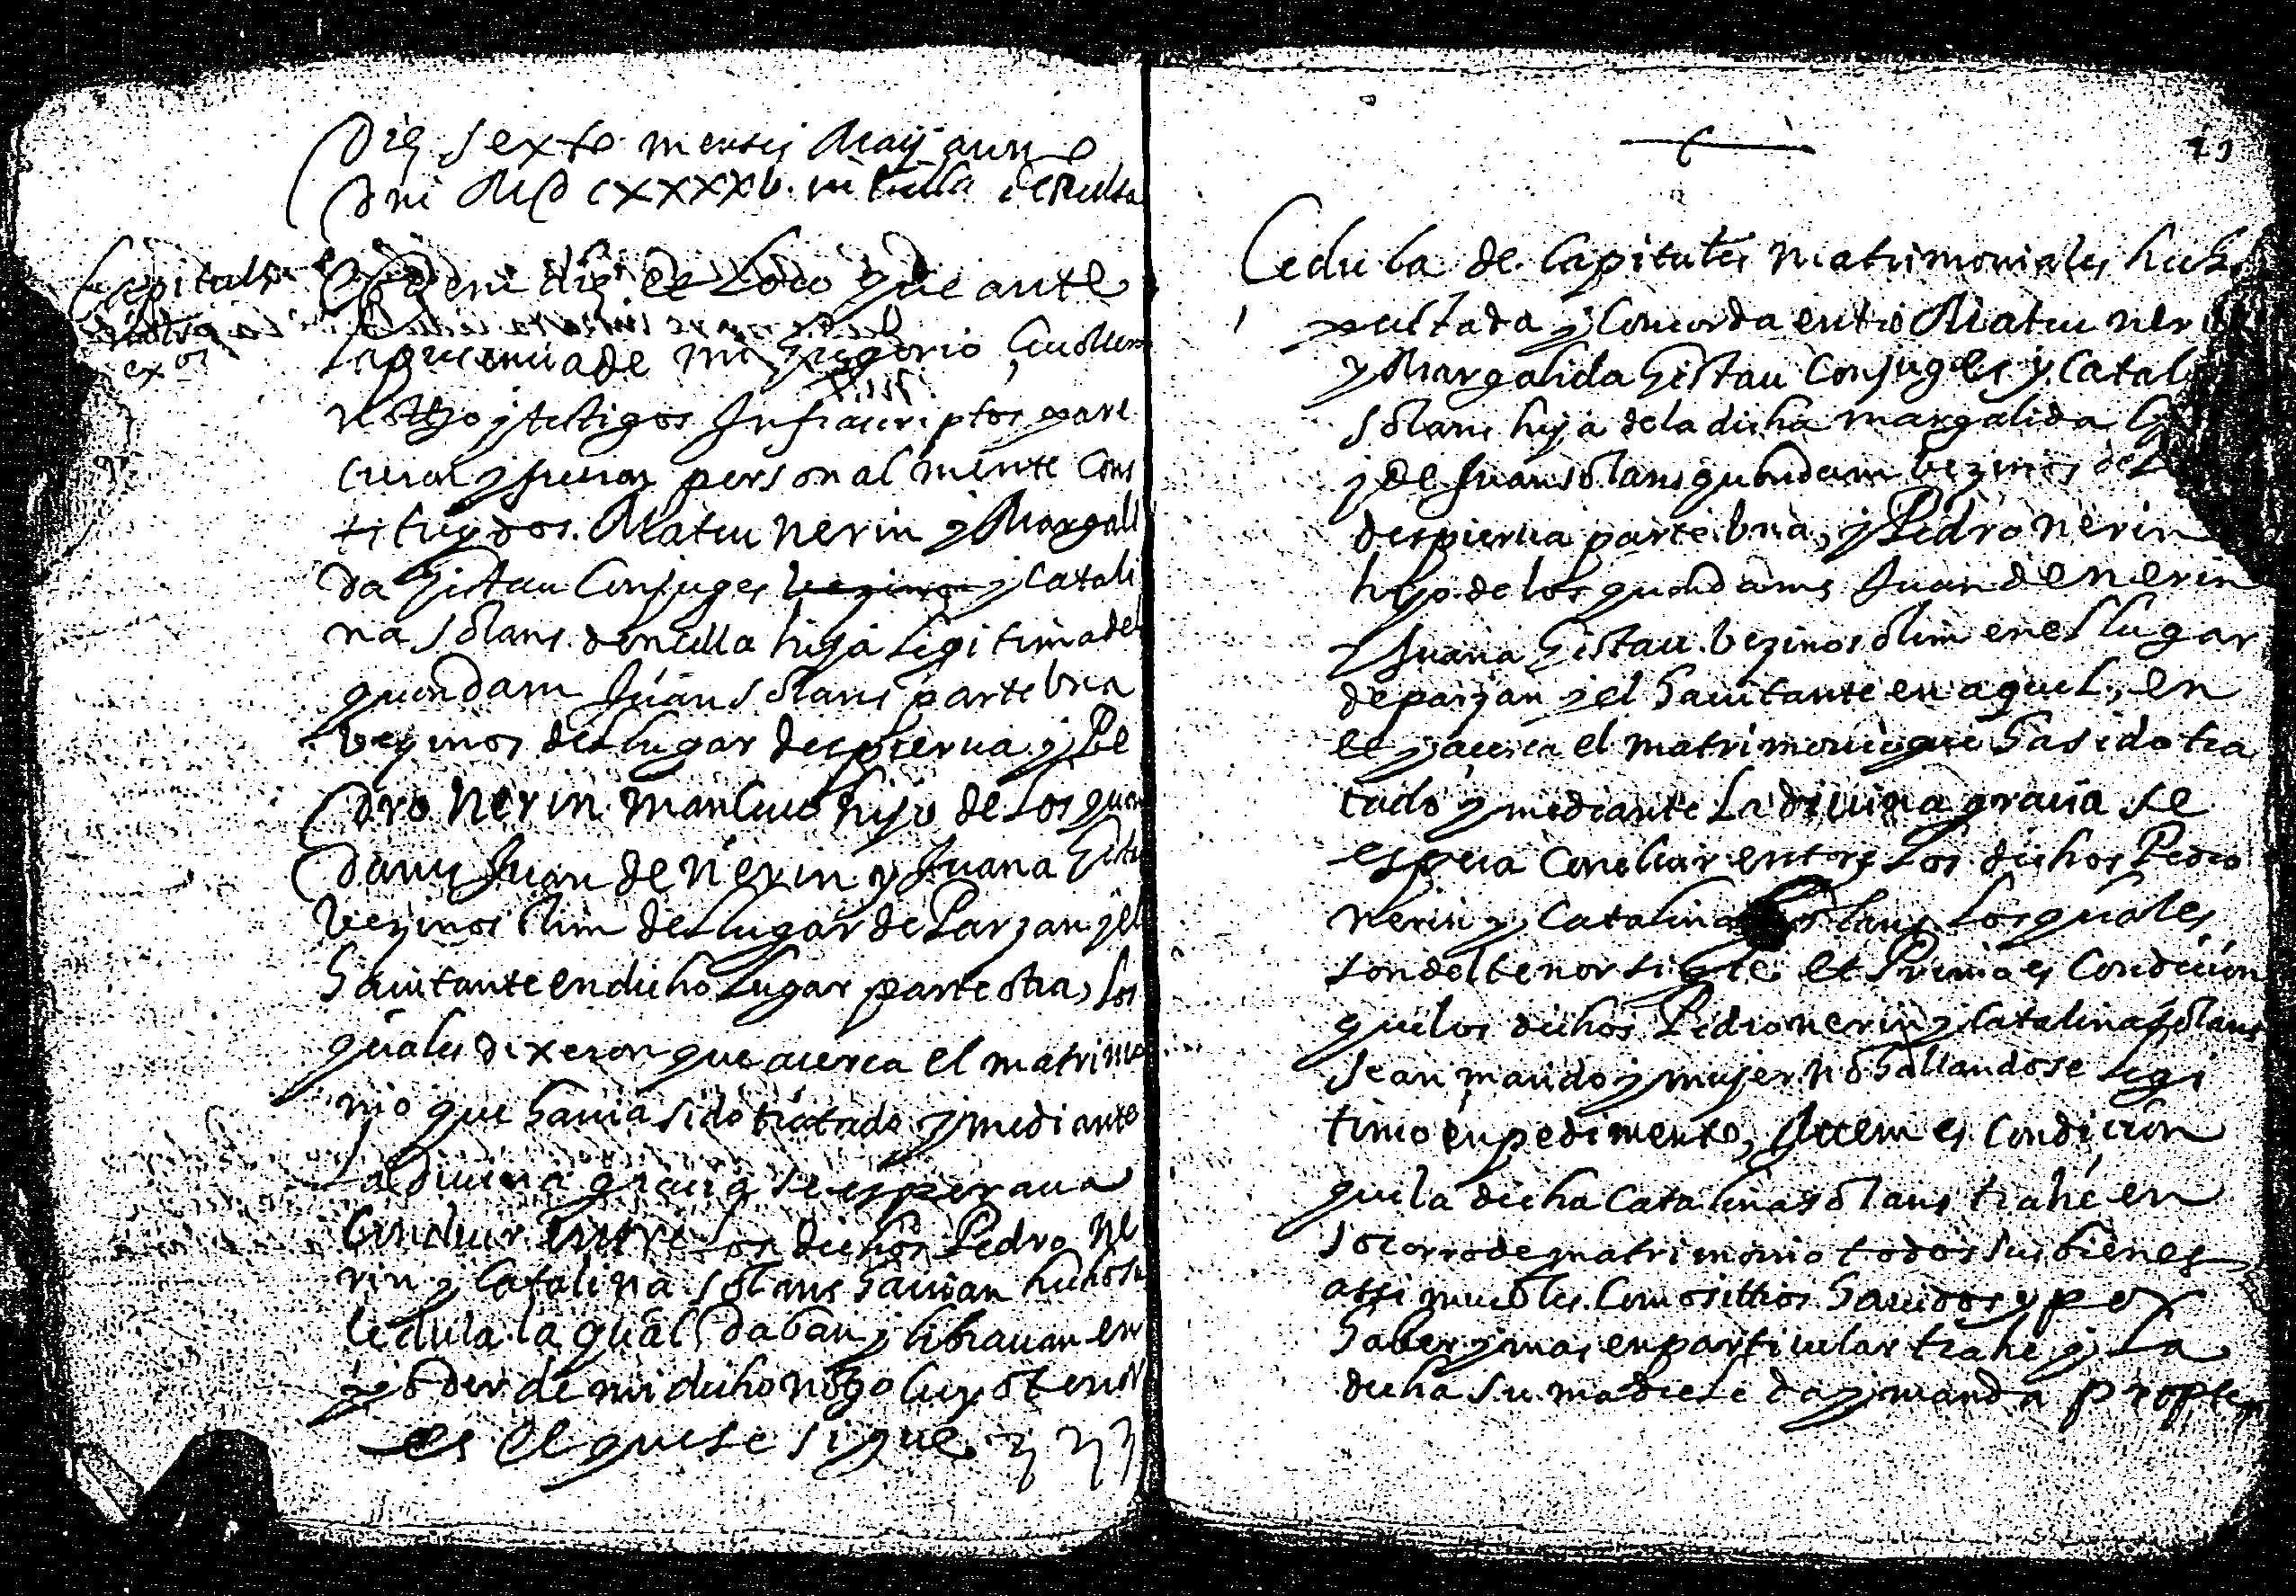 Die sexto mensis Maij anno
Dni MDCXXXXV. in villa de Bielsa
Capitulos
matrimoniales
ex.os
Eodem die et loco que ante
la presencia de mi Gregorio
Notto y testigos Infrascriptos pare
cieron y fueron personalmente cons
tituydos. Mateu nerin y Margali
da Gistau Conjuges vezinos y Catali
na solans doncella hija Legitima del
quondam Juan solans parte vna
vezinos del lugar despierva y Pe
dro nerin mancevo hijo de los quon
dams Juan de nerin y Juana Gistau
vezinos olim del lugar de Parzan y el
Havitante en dicho Lugar parte otra, Los
quales dixeron que acerca el matrimo
nio que havia sido tratado y mediante
La divina gracia se esperava
Concluir entre Los dichos Pedro Ne
rin y Catalina solans havian hecho su
cedula la qual daban y libravan en
poder de mi dicho notto cuyo tenor
es el que se sigue
Cedula de Capitules matrimoniales hecha
pactada y Concorda entre Mateu nerin
y Margalida Gistau Conjuges y Catal
solans hija de la dicha margalida
y de Juan solans quondam vezinos del
despierva parte vna, y Pedro nerin
hijo de los quondams Juan de nerin
y Juana Gistau vezinos olim en el lugar
de parzan y el havitante en aquel, en
et y acerca el matrimonio que ha sido tra
tado y mediante La divina gracia se
espera Concluir entre Los dichos Pedro
nerin y Catalina solans Los quales
son del tenor sigte et Primo es Condicion
que los dichos Pedro nerin y Catalina solans
sean marido y mujer no hallandose Legi
timo enpedimento, Ittem es Condicion
que la dicha Catalina solans trahe en
socorro de matrimonio todos sus bienes
assi muebles como sittios havidos y por
haber y mas en particular trahe y La
dicha su madre le da y manda propter